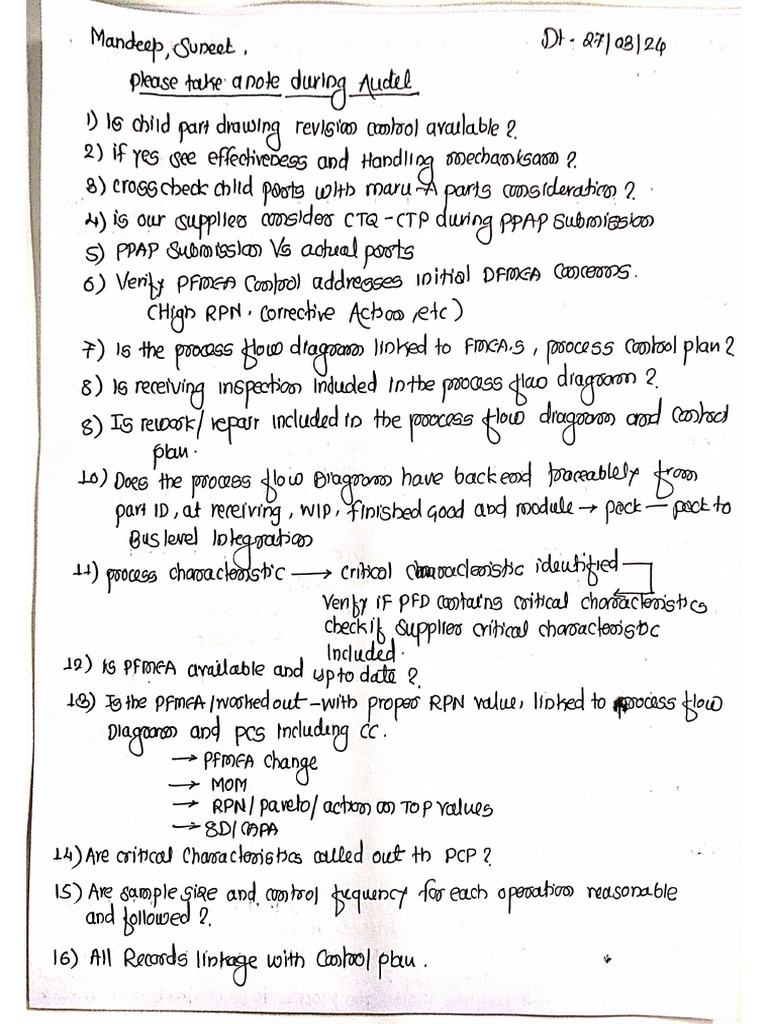 Mandeep, Suneet. Dt - 27/03/24
Please take a note during Audel
1) Is child part drawing revision control available ?
2) if yes see effectiveness and Handling mechanksam ?
3) cross check child ports with maru-A parts consideration ?
4) is our supplier consider CTQ - CTP during PPAP Submission
5) PPAP Submission Vs actual ports
6) Verify PFMEA Control addresses initial DFMEA Concerns.
(High RPN. Corrective Action, etc)
7) Is the process flow diagram linked to FMEA.s, process Control plan ?
8) Is receiving inspection included in the process flow diagram ?
8) Is rework/repair included in the process flow diagram and Control
plan.
10) Does the process flow Diagram have backend traceablely from
part ID, at receiving, WIP, finished Good and module → pack — pack to
Bus level Integration
11) process characteristic → critical characteristic identified
Verify if PFD contains critical characteristics
check if supplier critical characteristic
included.
12) is PFMEA available and up to date ?
13) Is the PFMEA / worked out - with proper RPN value, linked to process flow
Diagram and PCS including CC.
→ PFMEA change
→ MOM
→ RPN / pareto / action on TOP values
→ 8D/CAPA
14) Are critical Characteristics called out th PCP ?
15) Are sample size and control frequency for each operation reasonable
and followed ?
16) All Records linkage with Control plan.